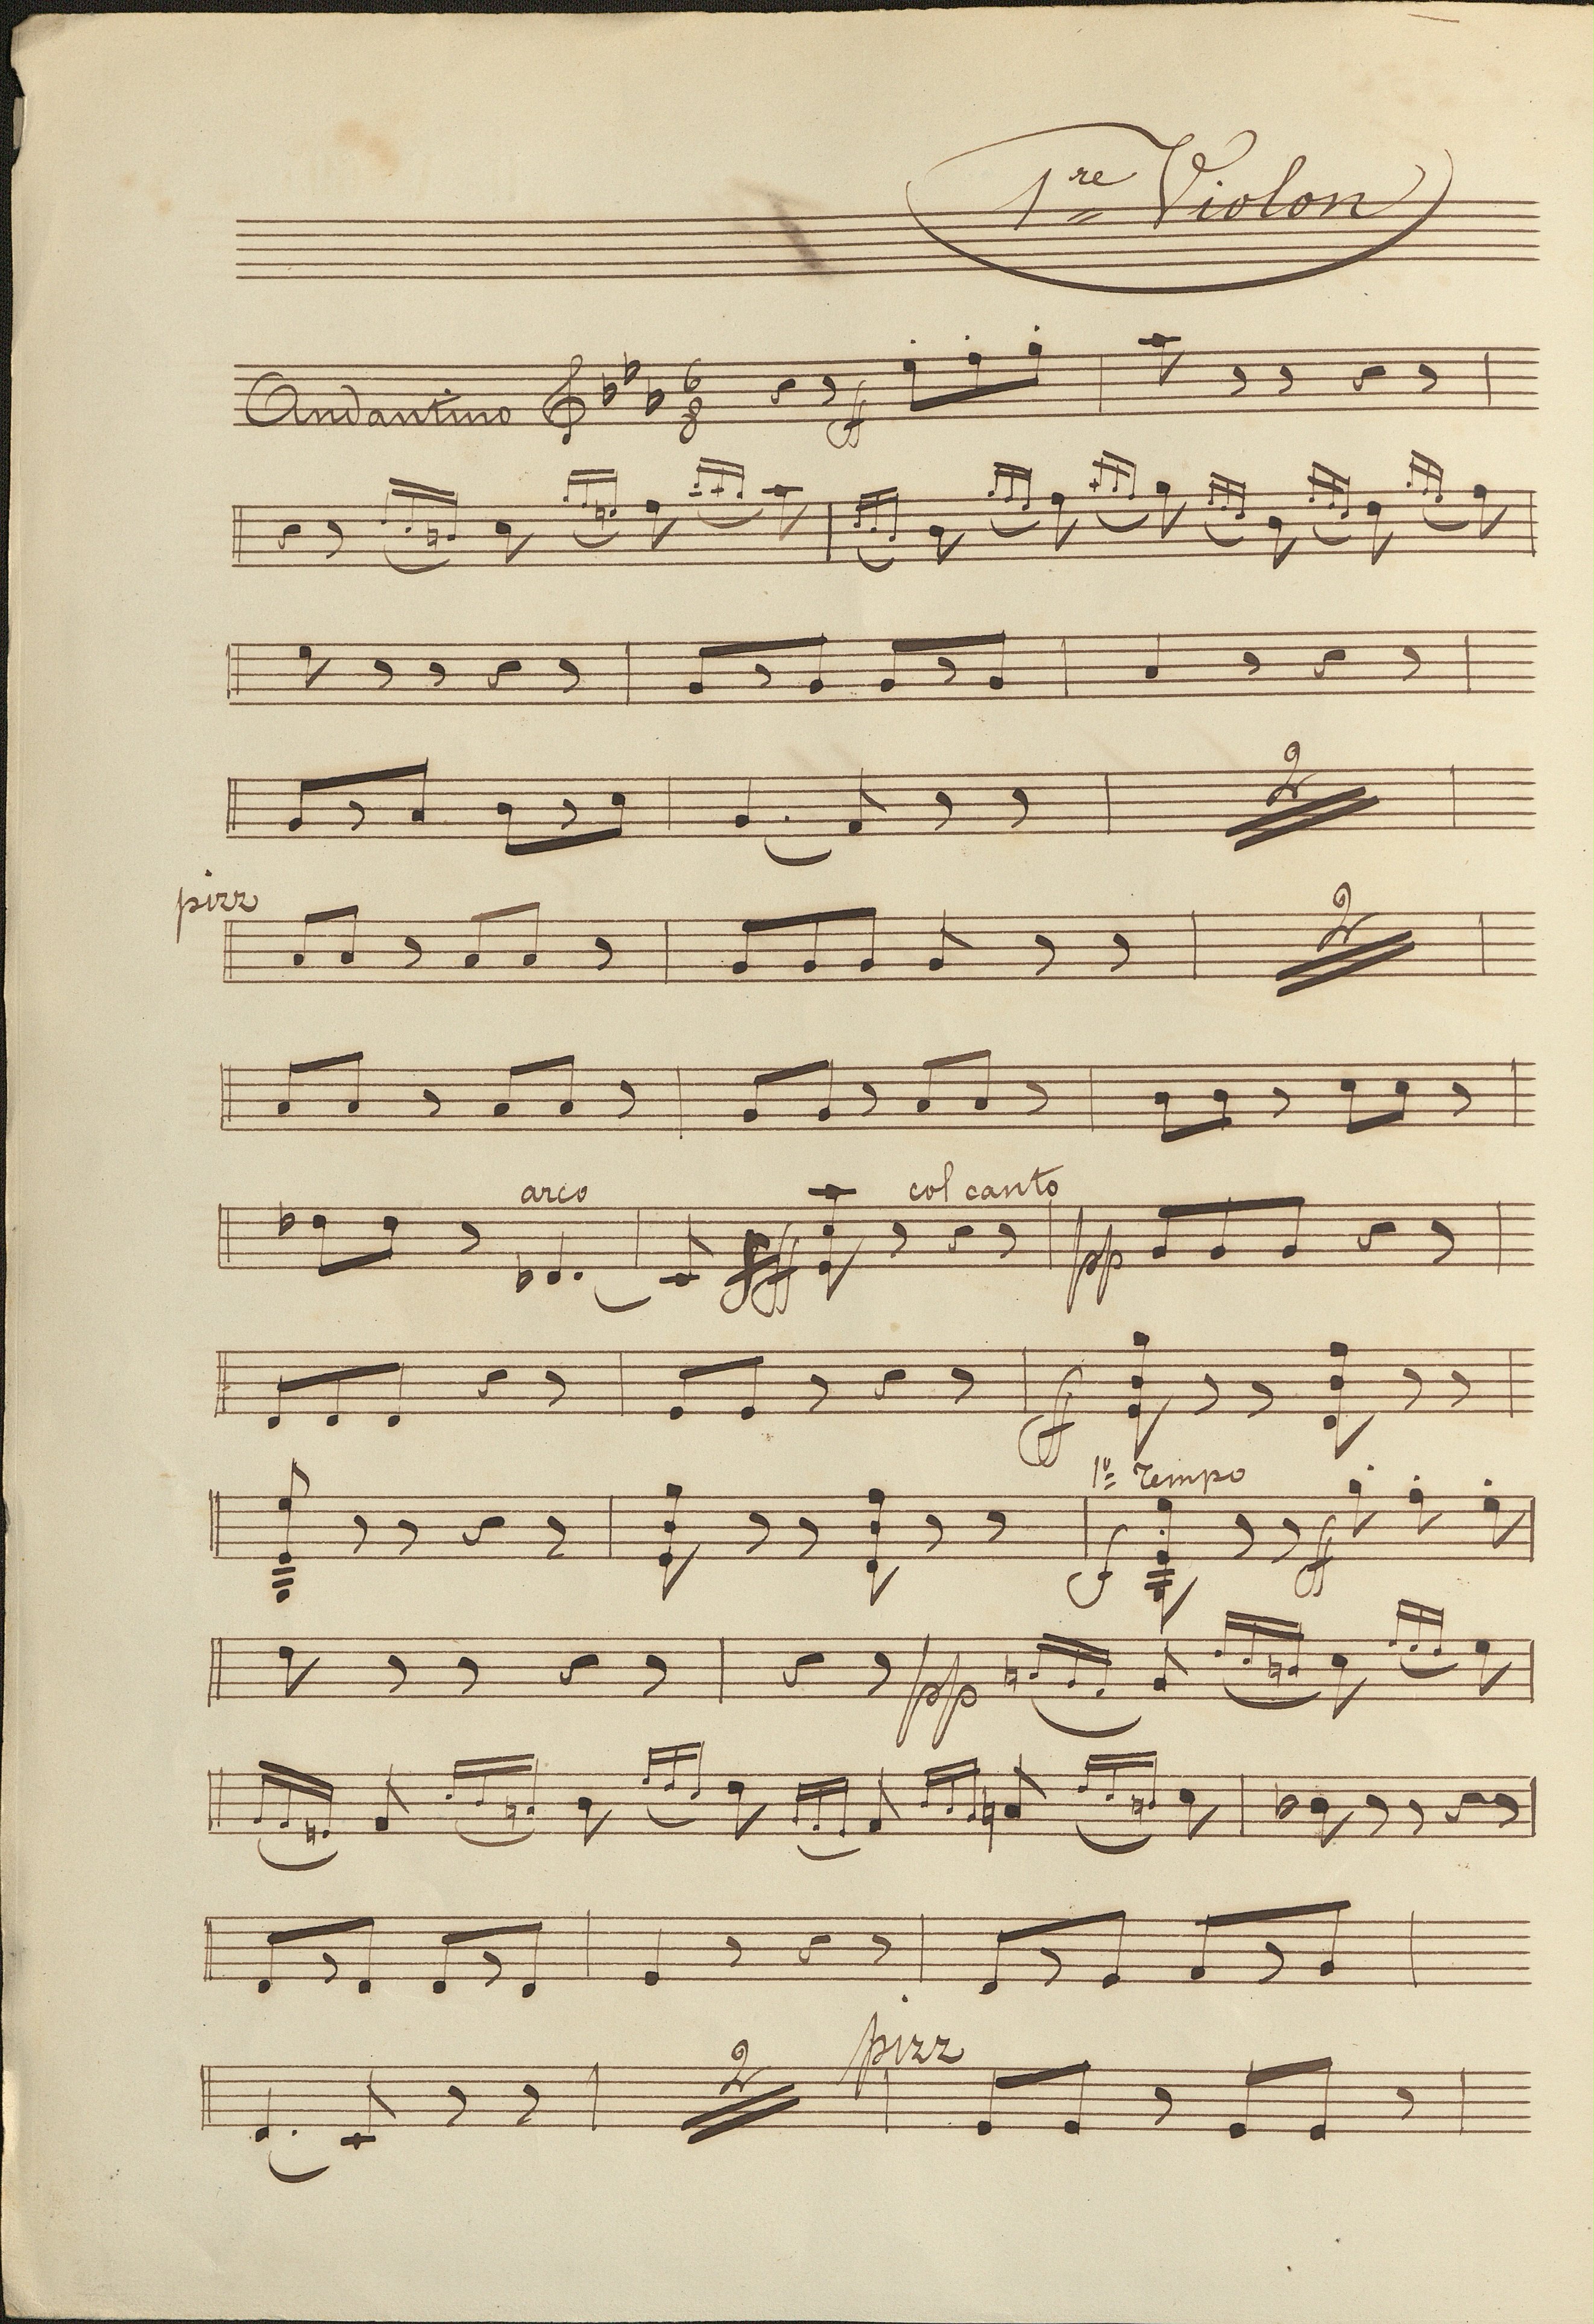 1re Violon
Andantino 6/8 ff
2
pizz
2
arco ff col canto pp
ff
1o Tempo
f ff
pp
pizz
2